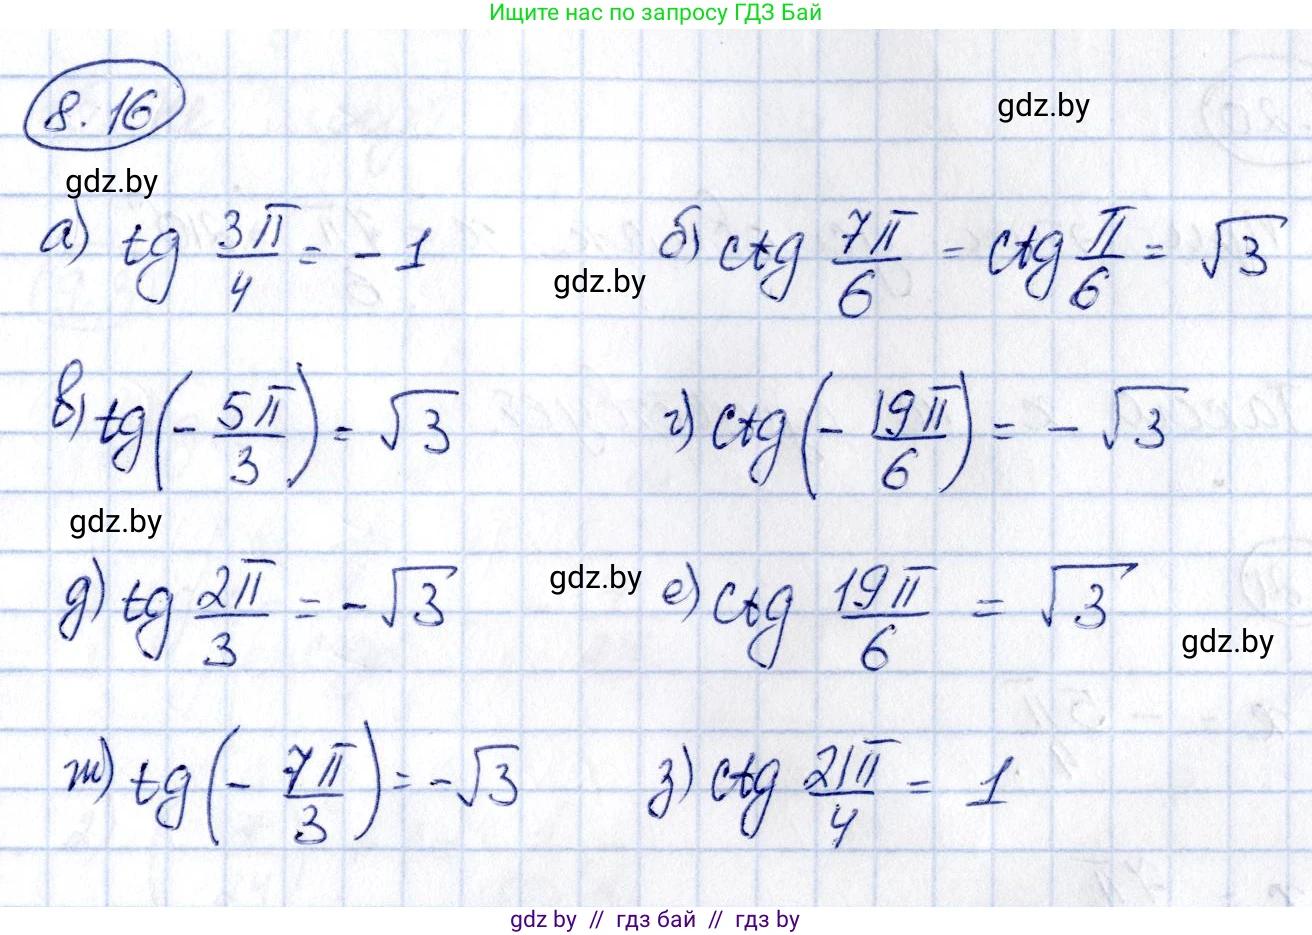 Ищите нас по запросу ГДЗ Бай
8.16
gdz.by
gdz.by
а) tg 3π/4 = - 1
б) ctg 7π/6 = ctg π/6 = √3
gdz.by
в) tg(- 5π/3) = √3
г) ctg(- 19π/6) = - √3
gdz.by
gdz.by
д) tg 2π/3 = - √3
е) ctg 19π/6 = √3
gdz.by
ж) tg(- 7π/3) = - √3
з) ctg 21π/4 = 1
gdz by // гдз бай // gdz by